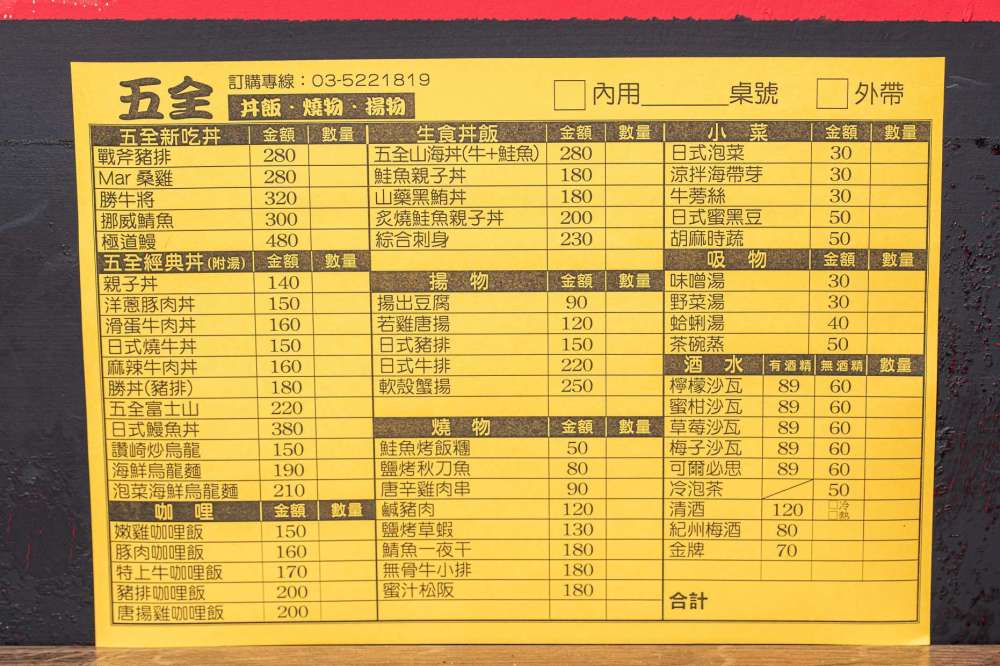 五全 訂購專線：03-5221819
丼飯．燒物．揚物
□內用______桌號 □外帶
五全新吃丼 金額 數量
戰斧豬排 280
Mar 桑雞 280
勝牛將 320
挪威鯖魚 300
極道鰻 480
五全經典丼(附湯) 金額 數量
親子丼 140
洋蔥豚肉丼 150
滑蛋牛肉丼 160
日式燒牛丼 150
麻辣牛肉丼 160
勝丼(豬排) 180
五全富士山 220
日式鰻魚丼 380
讚崎炒烏龍 150
海鮮烏龍麵 190
泡菜海鮮烏龍麵 210
咖哩 金額 數量
嫩雞咖哩飯 150
豚肉咖哩飯 160
特上牛咖哩飯 170
豬排咖哩飯 200
唐揚雞咖哩飯 200
生食丼飯 金額 數量
五全山海丼(牛+鮭魚) 280
鮭魚親子丼 180
山藥黑鮪丼 180
炙燒鮭魚親子丼 200
綜合刺身 230
揚物 金額 數量
揚出豆腐 90
若雞唐揚 120
日式豬排 150
日式牛排 220
軟殼蟹揚 250
燒物 金額 數量
鮭魚烤飯糰 50
鹽烤秋刀魚 80
唐辛雞肉串 90
鹹豬肉 120
鹽烤草蝦 130
鯖魚一夜干 180
無骨牛小排 180
蜜汁松阪 180
小菜 金額 數量
日式泡菜 30
涼拌海帶芽 30
牛蒡絲 30
日式蜜黑豆 50
胡麻時蔬 50
吸物 金額 數量
味噌湯 30
野菜湯 30
蛤蜊湯 40
茶碗蒸 50
酒水 有酒精 無酒精 數量
檸檬沙瓦 89 60
蜜柑沙瓦 89 60
草莓沙瓦 89 60
梅子沙瓦 89 60
可爾必思 89 60
冷泡茶 50
清酒 120 □冷 □熱
紀州梅酒 80
金牌 70
合計